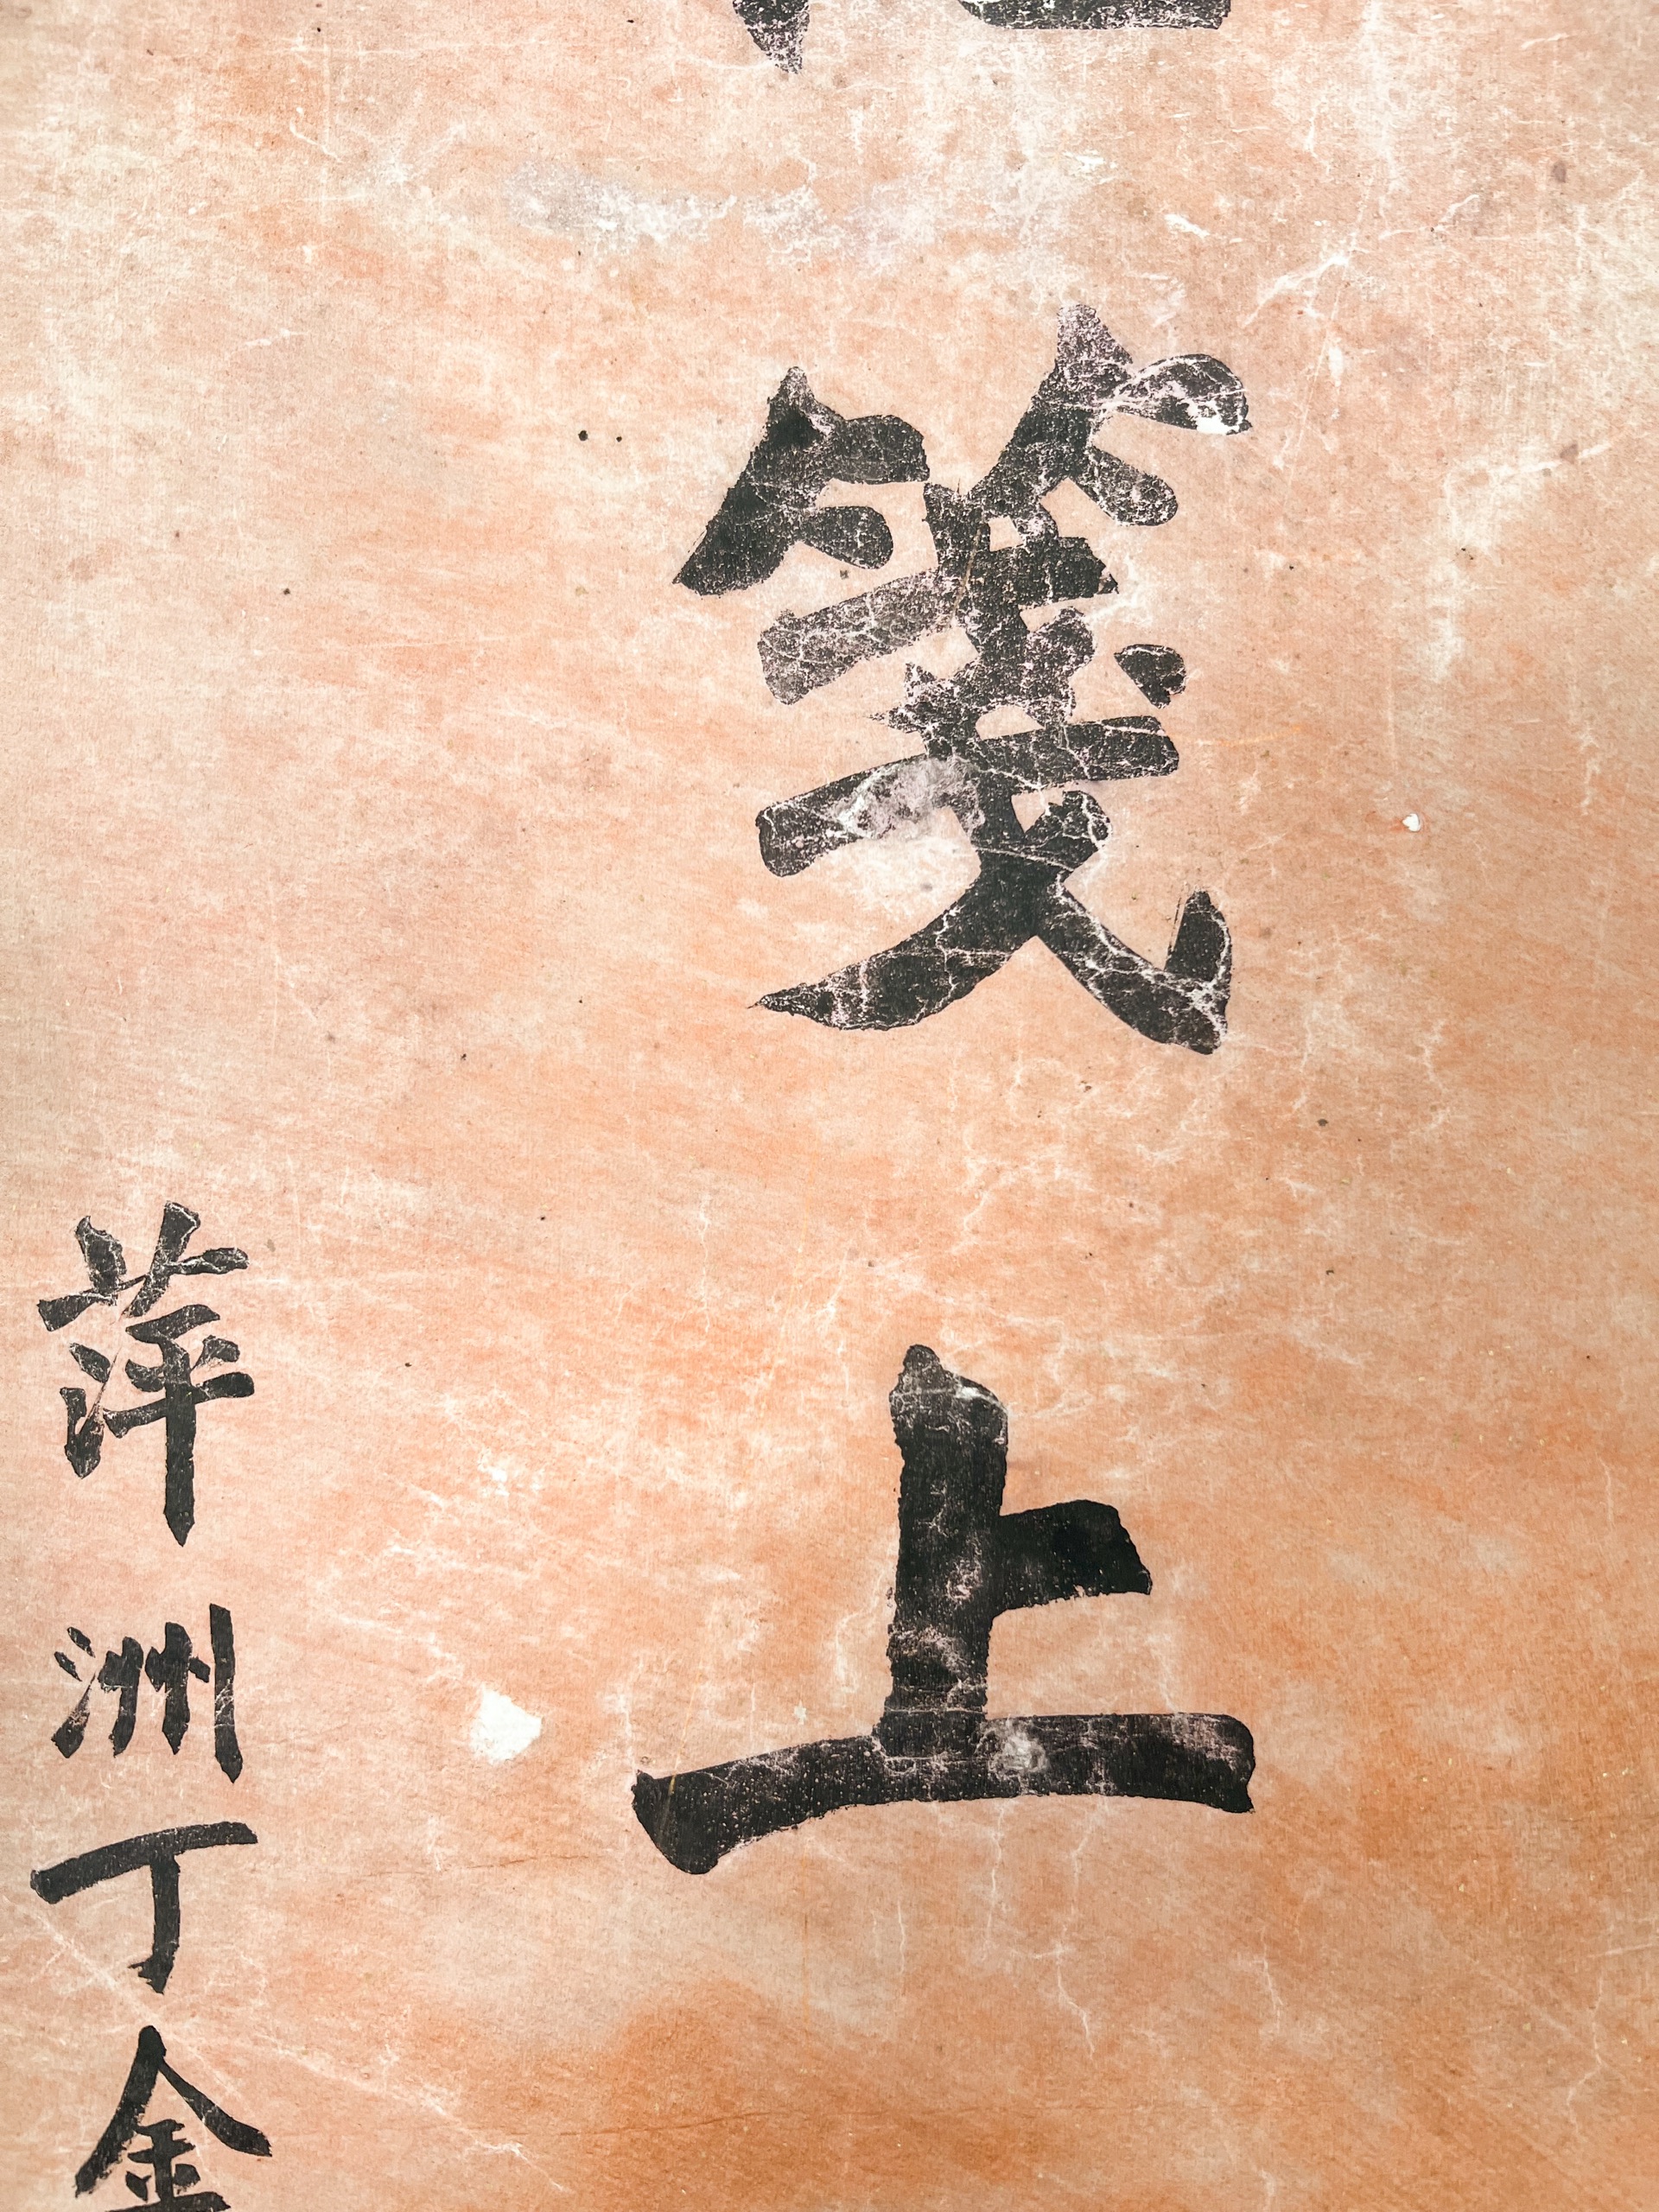 箋上
萍洲丁金